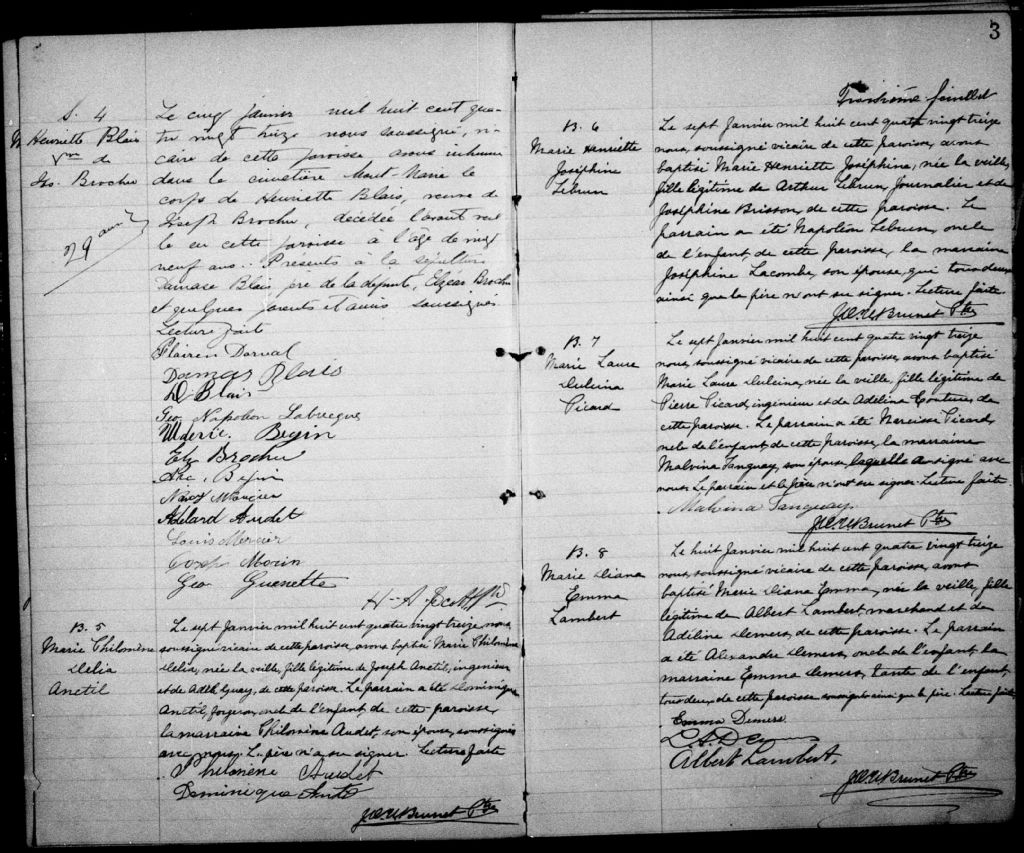 S. 4
Henriette Blais
Vve de
Jos. Brochu
29 ans
Le cinq janvier mil huit cent qua-
tre vingt treize nous soussigné, vi-
caire de cette paroisse avons inhumé
dans le cimetière Mont-Marie le
corps de Henriette Blais, veuve de
Joseph Brochu, décédée l'avant veil
le en cette paroisse à l'âge de vingt
neuf ans. Présents à la sépulture
Damase Blais père de la défunte, Elzéar Brochu
et quelques parents et amis soussignés
Lecture faite
Dorval
Damas Blais
D Blais
Geo Napoleon Labrecque
Ulderic Begin
Elz Brochu
Begin
Narcisse Mercier
Adelard Audet
Louis Mercier
Joseph Morin
Geo Guenette
H-A. Scott Ptre
B. 5
Marie Philomène
Delia
Anctil
Le sept Janvier mil huit cent quatre vingt treize, nous
soussigné vicaire de cette paroisse, avons baptisé Marie Philomène
Delia, née la veille, fille légitime de Joseph Anctil, ingénieur
et de Adèle Guay, de cette paroisse. Le parrain a été Dominique
Anctil, forgeron, oncle de l'enfant, de cette paroisse,
la marraine Philomène Audet, son épouse, soussignés
avec nous. Le père n'a su signer. Lecture faite
Philomène Audet
Dominique
Brunet Ptre
3
Troisième feuillet
B. 6
Marie Henriette
Joséphine
Lebrun
Le sept Janvier mil huit cent quatre vingt treize
nous, soussigné vicaire de cette paroisse, avons
baptisé Marie Henriette Joséphine, née la veille,
fille légitime de Arthur Lebrun, Journalier et de
Joséphine Brisson, de cette paroisse. Le
parrain a été Napoléon Lebrun, oncle
de l'enfant, de cette paroisse, la marraine
Joséphine Lacombe, son épouse, qui tous deux
ainsi que le père n'ont su signer. Lecture faite
Brunet Ptre
B. 7
Marie Laure
Dulcina
Picard
Le sept Janvier mil huit cent quatre vingt treize
nous, soussigné vicaire de cette paroisse, avons baptisé
Marie Laure Dulcina, née la veille, fille légitime de
Pierre Picard, ingénieur et de Adelina Couture, de
cette paroisse. Le parrain a été Narcisse Picard,
oncle de l'enfant, de cette paroisse, la marraine
Malvina Tanguay, son épouse, laquelle a signé avec
nous. Le parrain et le père n'ont su signer. Lecture faite.
Malvina Tanguay.
Brunet Ptre
B. 8
Marie Diana
Emma
Lambert
Le huit Janvier mil huit cent quatre vingt treize
nous, soussigné vicaire de cette paroisse, avons
baptisé Marie Diana Emma, née la veille, fille
légitime de Albert Lambert marchand et de
Adéline Demers, de cette paroisse. Le parrain
a été Alexandre Demers, oncle de l'enfant, la
marraine Emma Demers, tante de l'enfant,
tous deux, de cette paroisse soussignés ainsi que le père. Lecture faite
Emma Demers
Albert Lambert.
Brunet Ptre